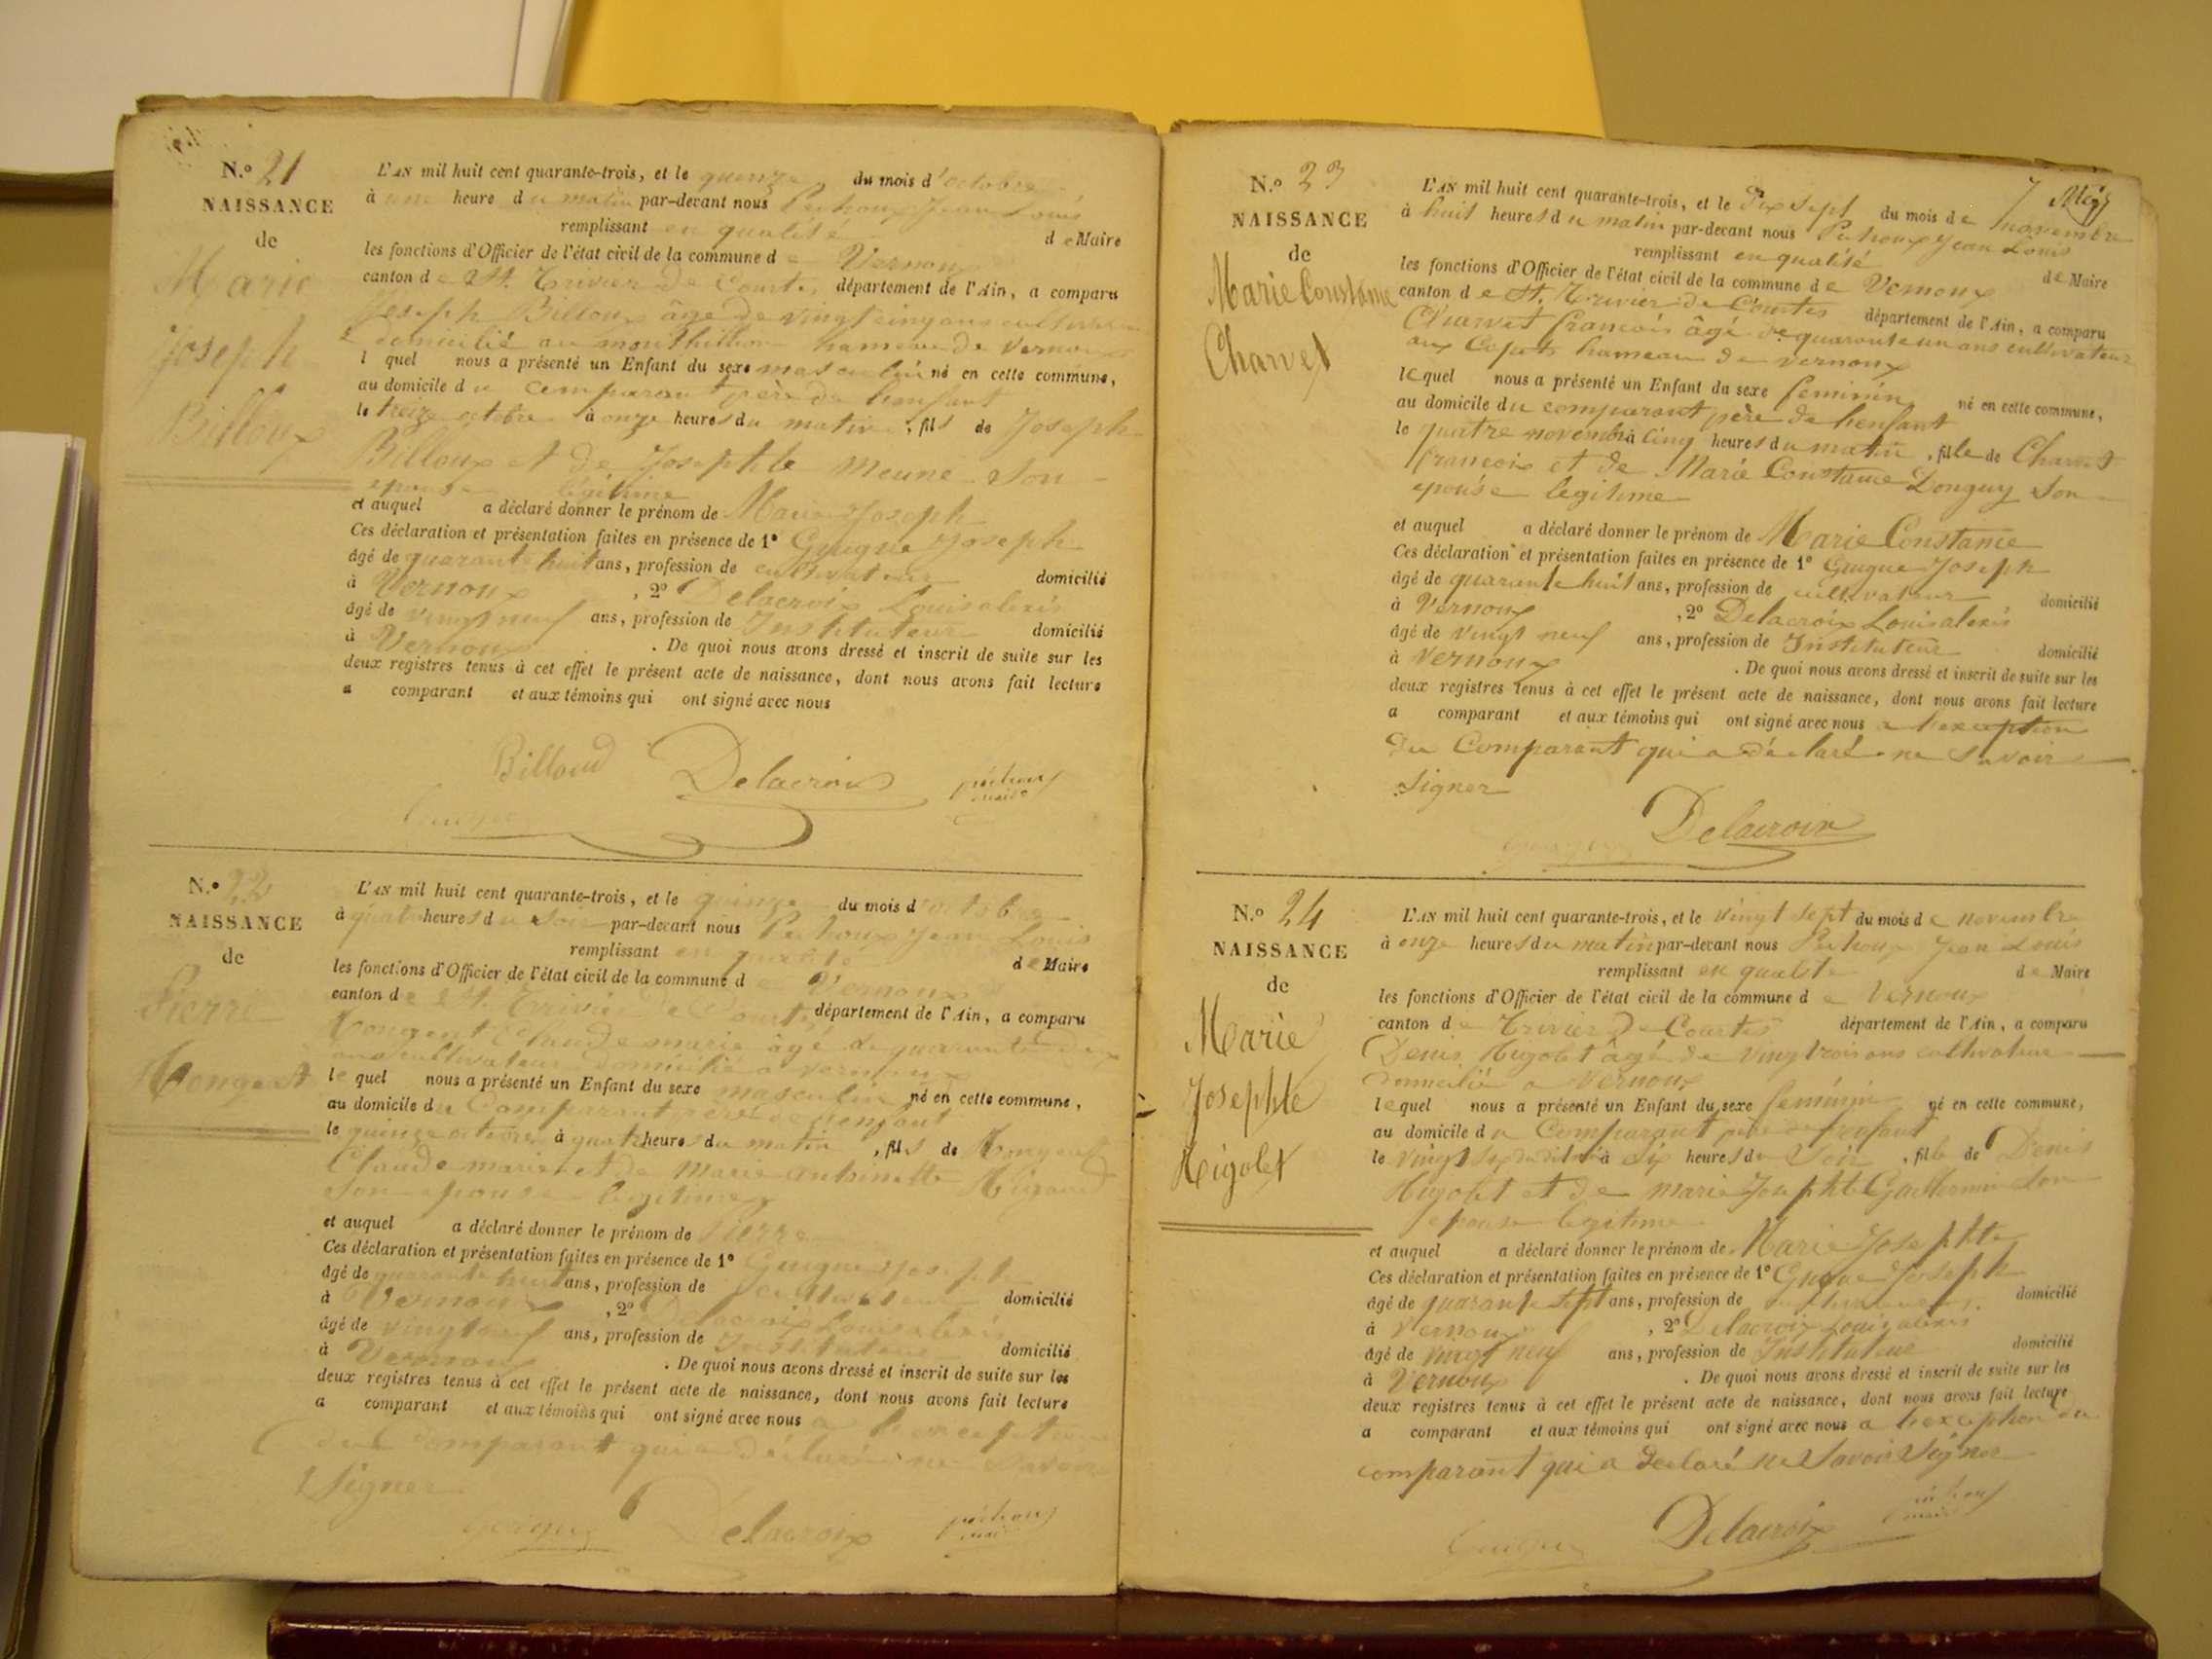 N.o 21
NAISSANCE
de
Marie
Joseph
Billoux
L'AN mil huit cent quarante-trois, et le quinze du mois d'octobre
à une heure du matin par-devant nous Pechoux Jean Louis
remplissant en qualité de Maire
les fonctions d'Officier de l'état civil de la commune de Vernoux
canton de St. Trivier De Courtes, département de l'Ain, a comparu
Joseph Billoux âgé de vingt cinq ans cultivateur
domicilié au monthillion hameau de Vernoux
lequel nous a présenté un Enfant du sexe masculin né en cette commune,
au domicile du comparant père de lenfant
le treize octobre à onze heures du matin, fils de Joseph
Billoux et de Josephte Meune Son
epouse légitime
et auquel a déclaré donner le prénom de Marie Joseph
Ces déclaration et présentation faites en présence de 1o Guigue Joseph
âgé de quarante huit ans, profession de cultivateur domicilié
à Vernoux, 2o Delacroix Louis alexis
âgé de vingt neuf ans, profession de Instituteur domicilié
à Vernoux. De quoi nous avons dressé et inscrit de suite sur les
deux registres tenus à cet effet le présent acte de naissance, dont nous avons fait lecture
a comparant et aux témoins qui ont signé avec nous
Billoud Delacroix péchoux
maire
Guigue
N.o 22
NAISSANCE
de
Pierre
Mongent
L'AN mil huit cent quarante-trois, et le quinze du mois d'octobre
à quatre heures du Soir par-devant nous Pechoux Jean Louis
remplissant en qualité de Maire
les fonctions d'Officier de l'état civil de la commune de Vernoux
canton de St. Trivier de Courtes département de l'Ain, a comparu
Mongent Claude marie âgé de quarante deux
ans cultivateur domicilié a vernoux
lequel nous a présenté un Enfant du sexe masculin né en cette commune,
au domicile du Comparant père de lenfant
le quinze octobre à quatre heures du matin, fils de Mongent
Claude marie et de Marie antoinette Rigaud
Son epouse legitime
et auquel a déclaré donner le prénom de Pierre
Ces déclaration et présentation faites en présence de 1o Guigue Joseph
âgé de quarante huit ans, profession de Cultivateur domicilié
à Vernoux, 2o Delacroix Louis alexis
âgé de vingt neuf ans, profession de Instituteur domicilié
à Vernoux. De quoi nous avons dressé et inscrit de suite sur les
deux registres tenus à cet effet le présent acte de naissance, dont nous avons fait lecture
a comparant et aux témoins qui ont signé avec nous a l'exception
du Comparant qui a déclaré ne Savoir
Signer
Guigue Delacroix péchoux
maire
7
N.o 23
NAISSANCE
de
Marie Constance
Charvet
L'AN mil huit cent quarante-trois, et le Dix sept du mois de novembre
à huit heures du matin par-devant nous Pechoux Jean Louis
remplissant en qualité de Maire
les fonctions d'Officier de l'état civil de la commune de Vernoux
canton de St. Trivier de Courtes département de l'Ain, a comparu
Charvet françois âgé de quarante un ans cultivateur
aux hameau de Vernoux
lequel nous a présenté un Enfant du sexe feminin né en cette commune,
au domicile du comparant père de lenfant
le quatre novembre à cinq heures du matin, fille de Charvet
françois et de Marie Constance Donguy Son
epouse legitime
et auquel a déclaré donner le prénom de Marie Constance
Ces déclaration et présentation faites en présence de 1o Guigue Joseph
âgé de quarante huit ans, profession de cultivateur domicilié
à Vernoux, 2o Delacroix Louis alexis
âgé de vingt neuf ans, profession de Instituteur domicilié
à Vernoux. De quoi nous avons dressé et inscrit de suite sur les
deux registres tenus à cet effet le présent acte de naissance, dont nous avons fait lecture
a comparant et aux témoins qui ont signé avec nous a l'exception
du Comparant qui a déclaré ne Savoir
Signer
Delacroix
Guigue
N.o 24
NAISSANCE
de
Marie
Josephte
Rigolet
L'AN mil huit cent quarante-trois, et le vingt sept du mois de novembre
à onze heures du matin par-devant nous Pechoux Jean Louis
remplissant en qualité de Maire
les fonctions d'Officier de l'état civil de la commune de Vernoux
canton de Trivier De Courtes département de l'Ain, a comparu
Denis Rigolet âgé de vingt trois ans cultivateur
domicilié a Vernoux
lequel nous a présenté un Enfant du sexe feminin né en cette commune,
au domicile du Comparant père de lenfant
le vingt six dudit mois à Six heures du Soir, fille de Denis
Rigolet et de marie Josephte Guillermin Son
epouse legitime
et auquel a déclaré donner le prénom de Marie Josephte
Ces déclaration et présentation faites en présence de 1o Guigue Joseph
âgé de quarante sept ans, profession de cultivateur domicilié
à Vernoux, 2o Delacroix Louis alexis
âgé de vingt neuf ans, profession de Instituteur domicilié
à Vernoux. De quoi nous avons dressé et inscrit de suite sur les
deux registres tenus à cet effet le présent acte de naissance, dont nous avons fait lecture
a comparant et aux témoins qui ont signé avec nous a l'exception du
comparant qui a declaré ne Savoir Signer
Guigue Delacroix péchoux
maire